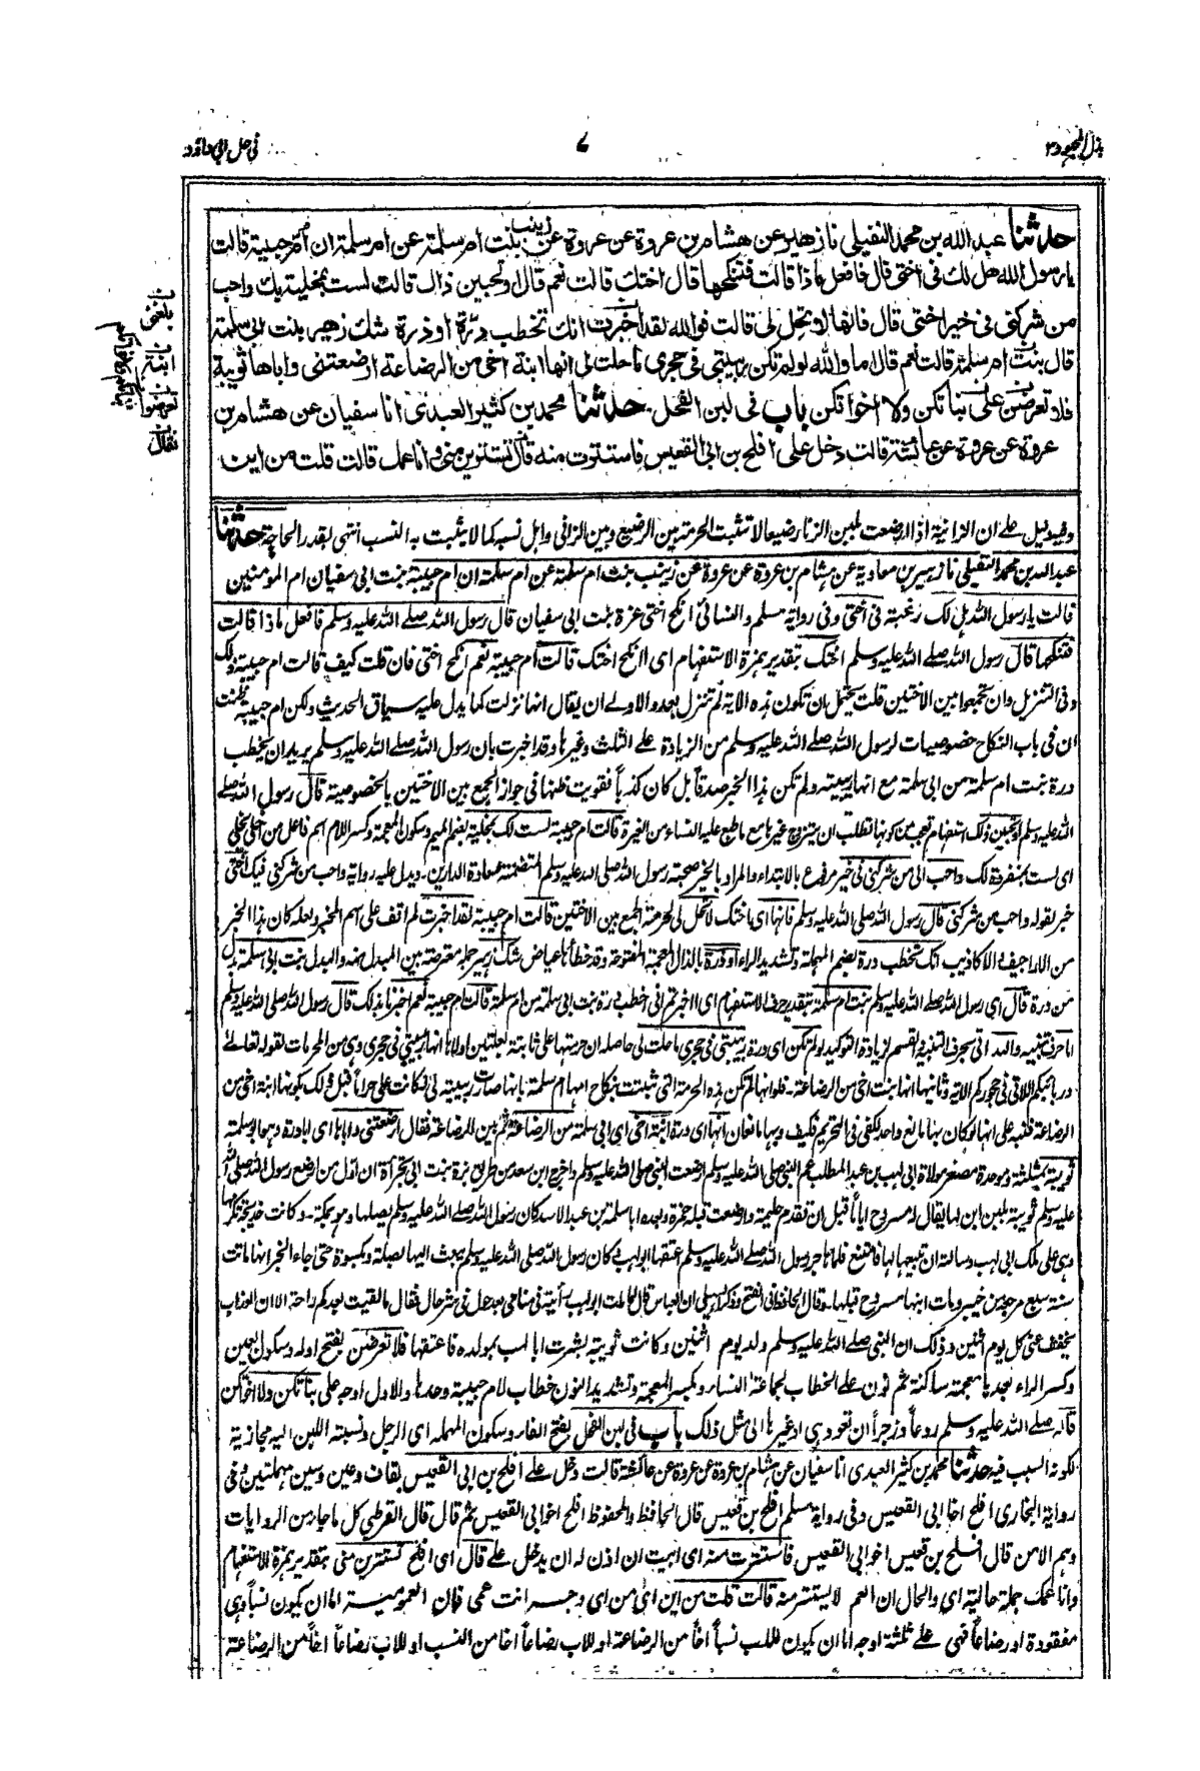 بذل المجهود ٣
٧
في حل ابي داؤد
حدثنا عبد الله بن محمد النفيلي نا زهير عن هشام بن عروة عن عروة عن زينب بنت ام سلمة عن ام سلمة ان ام حبيبة قالت
يا رسول الله هل لك في اختي قال فافعل ماذا قالت فتنكحها قال اختك قالت نعم قال او تحبين ذاك قالت لست بمخلية بك واحب
من شركني في خير اختي قال فانها لا تحل لي قالت فوالله لقد اخبرت انك تخطب درة او ذرة شك زهير بنت ابي سلمة
قال بنت ام سلمة قالت نعم قال اما والله لو لم تكن ربيبتي في حجري ما حلت لي انها ابنة اخي من الرضاعة ارضعتني واباها ثويبة
فلا تعرضن علي بناتكن ولا اخواتكن باب في لبن الفحل حدثنا محمد بن كثير العبدي انا سفيان عن هشام بن
عروة عن عروة عن عائشة قالت دخل علي افلح بن ابي القعيس فاستترت منه قال تستترين مني وانا عمك قالت قلت من اين
وفيه دليل على ان الزانية اذا ارضعت بلبن الزنا رضيعا لا تثبت الحرمة بين الرضيع وبين الزاني واهل نسبه كما لا يثبت به النسب انتهى بقدر الحاجة حدثنا
عبد الله بن محمد النفيلي نا زهير بن معاوية عن هشام بن عروة عن عروة عن زينب بنت ام سلمة عن ام سلمة ان ام حبيبة بنت ابي سفيان ام المؤمنين
قالت يا رسول الله هل لك رغبة في اختي وفي رواية مسلم والنسائي انكح اختي عزة بنت ابي سفيان قال رسول الله صلے الله عليه وسلم فافعل ماذا قالت
فتنكحها قال رسول الله صلے الله عليه وسلم اختك بتقدير همزة الاستفهام اي أ انكح اختك قالت ام حبيبة نعم انكح اختي فان قلت كيف قالت ام حبيبة ذلك
وفي التنزيل وان تجمعوا بين الاختين قلت يحتمل ان تكون هذه الاية لم تنزل بعد والاولے ان يقال انها نزلت كما يدل عليه سياق الحديث ولكن ام حبيبة ظنت
ان في باب النكاح خصوصيات لرسول الله صلے الله عليه وسلم من الزيادة على الثلث وغيرها وقد اخبرت بان رسول الله صلے الله عليه وسلم يريد ان يخطب
درة بنت ام سلمة من ابي سلمة مع انها ربيبته ولم تكن هذا الخبر صدقا بل كان كذبا فقويت ظنها في جواز الجمع بين الاختين بالخصوصية قال رسول الله صلے
الله عليه وسلم او تحبين ذلك استفهام تعجب من كونها تطلب ان يتزوج غيرها مع ما طبع عليه النساء من الغيرة قالت ام حبيبة لست لك بمخلية بضم الميم وسكون المعجمة وكسر اللام اسم فاعل من اخلى يخلي
اي لست بمنفردة لك واحب الي من شركني في خير مرفوع بالابتداء والمراد بالخير صحبة رسول الله صلى الله عليه وسلم المتضمنة سعادة الدارين ويدل عليه رواية واحب من شركني فيك اختي
خبر لقوله واحب من شركني قال رسول الله صلى الله عليه وسلم فانها اي اختك لا تحل لي لحرمة الجمع بين الاختين قالت ام حبيبة لقد اخبرت لم اقف على اسم المخبر ولعله كان هذا الخبر
من الاراجيف والاكاذيب انك تخطب درة بضم المهملة وتشديد الراء او ذرة بالذال المعجمة المفتوحة وقد خطأها عياض شك زهير جملة معترضة بين المبدل منه والبدل بنت ابي سلمة بدل
من درة قال اي رسول الله صلے الله عليه وسلم بنت ام سلمة بتقدير حرف الاستفهام اي أ اخبرتم اني اخطب درة بنت ابي سلمة من ام سلمة قالت ام حبيبة نعم اخبرنا بذلك قال رسول الله صلى الله عليه وسلم
اما حرف تنبيه والله اتى بحرف التنبيه والقسم لزيادة التوكيد لو لم تكن اي درة ربيبتي في حجري ما حلت لي حاصله ان حرمتها علي ثابتة لعلتين اولاها انها ربيبتي في حجري وهي من المحرمات لقوله تعالے
وربائبكم اللاتي في حجوركم الاية وثانيها انها بنت اخي من الرضاعة فلو انها لم تكن هذه الحرمة التي ثبتت بنكاح امها ام سلمة بانها صارت ربيبة لي فكانت علي حراما قبل ذلك لكونها ابنة اخي من
الرضاعة فنبه على انها لو كان بها مانع واحد لكفى في التحريم فكيف وبها مانعان انها اي درة ابنة اخي اي ابي سلمة من الرضاعة ثم بين للرضاعة فقال ارضعتني واباها اي ابا درة وهو ابو سلمة
ثويبة بمثلثة وموحدة مصغر مولاة ابي لهب بن عبد المطلب عم النبي صلى الله عليه وسلم ارضعت النبي صلى الله عليه وسلم واخرج ابن سعد من طريق برة بنت ابي تجرأة ان اول من ارضع رسول الله صلى الله
عليه وسلم ثويبة بلبن ابن لها يقال له مسروح اياما قبل ان تقدم حليمة وارضعت قبله حمزة وبعده ابا سلمة بن عبد الاسد كان رسول الله صلے الله عليه وسلم يصلها وهو بمكة وكانت خديجة تكرمها
وهي على ملك ابي لهب وسألته ان تبيعها لها فامتنع فلما هاجر رسول الله صلے الله عليه وسلم عتقها ابو لهب وكان رسول الله صلى الله عليه وسلم يبعث اليها بصلة وكسوة حتى جاء الخبر انها ماتت
سنة سبع مرجعه من خيبر ومات ابنها مسروح قبلها وقال الحافظ في الفتح وذكر السهيلي ان العباس قال لما مات ابو لهب رأيته في منامي بعد حول في شر حال فقال ما لقيت بعدكم راحة الا ان العذاب
يخفف عني كل يوم اثنين وذلك ان النبي صلے الله عليه وسلم ولد يوم اثنين وكانت ثويبة بشرت ابا لهب بمولده فاعتقها فلا تعرضن بفتح اوله وسكون العين
وكسر الراء بعدها معجمة ساكنة ثم نون على الخطاب لجماعة النساء وبكسر المعجمة وتشديد النون خطاب لام حبيبة وحدها والاول اوجه علي بناتكن ولا اخواتكن
قاله صلے الله عليه وسلم ردعا وزجرا ان تعود هي او غيرها الى مثل ذلك باب في لبن الفحل بفتح الفاء وسكون المهملة اي الرجل ونسبة اللبن اليه مجازية
لكونه السبب فيه حدثنا محمد بن كثير العبدي انا سفيان عن هشام بن عروة عن عروة عن عائشة قالت دخل علي افلح بن ابي القعيس بقاف وعين وسين مهملتين وفي
رواية البخاري افلح اخا ابي القعيس وفي رواية مسلم افلح بن قعيس قال الحافظ والمحفوظ افلح اخو ابي القعيس ثم قال قال القرطبي كل ما جاء من الروايات
وهم الا من قال افلح بن قعيس اخو ابي القعيس فاستترت منه اي ابيت ان اذن له ان يدخل علي قال اي افلح تستترين مني بتقدير همزة الاستفهام
وانا عمك جملة حالية اي والحال ان العم لا يستتر منه قالت قلت من اين اي من اي وجه انت عمي فان العمومية اما ان يكون نسبا وهي
مفقودة او رضاعا فهي على ثلثة اوجه اما ان يكون للاب نسبا اخا من الرضاعة او للاب رضاعا اخا من النسب او للاب رضاعا اخا من الرضاعة